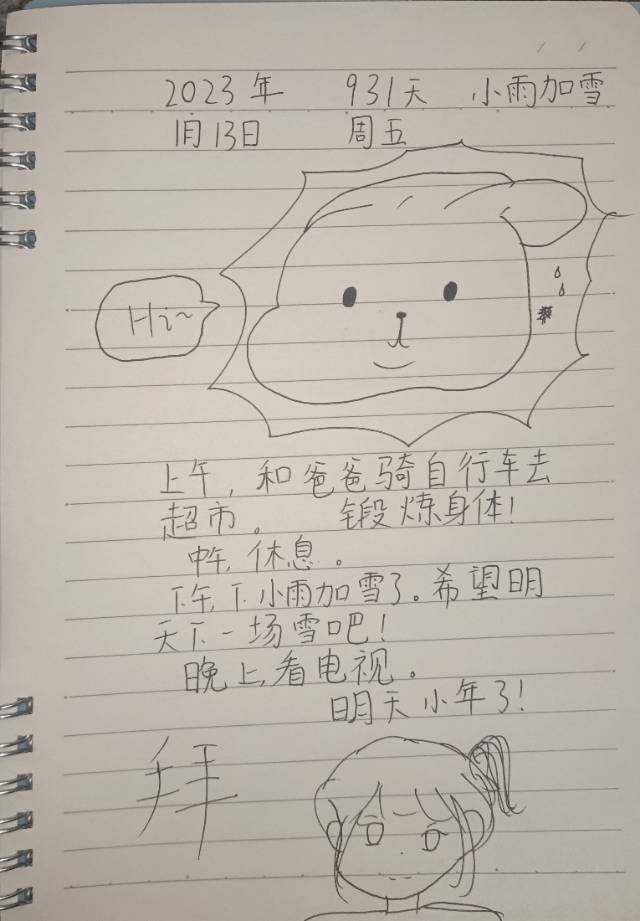 2023年 931天 小雨加雪
1月13日 周五
Hi~
上午，和爸爸骑自行车去
超市。 锻炼身体！
中午，休息。
下午，下小雨加雪了。希望明
天下一场雪吧！
晚上，看电视。
明天小年了！
拜